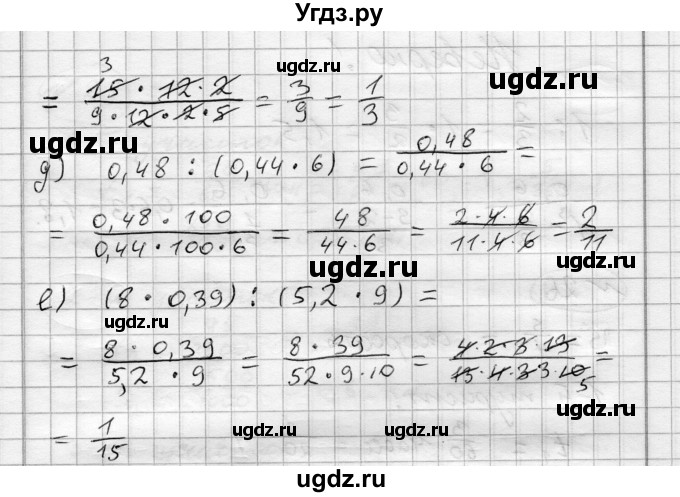 Угдз.ру
3
= (15 · 12 · 2)/(9 · 12 · 2 · 5) = 3/9 = 1/3
ugdz.ru ugdz.ru
д) 0,48 : (0,44 · 6) = 0,48/(0,44 · 6) =
ugdz.ru
= (0,48 · 100)/(0,44 · 100 · 6) = 48/(44 · 6) = (2 · 4 · 6)/(11 · 4 · 6) = 2/11
ugdz.ru ugdz.ru
е) (8 · 0,39) : (5,2 · 9) =
ugdz.ru
= (8 · 0,39)/(5,2 · 9) = (8 · 39)/(52 · 9 · 10) = (4 · 2 · 3 · 13)/(13 · 4 · 3 · 3 · 10) =
5
ugdz.ru
= 1/15
ugdz.ru ugdz.ru
ugdz.ru
ugdz.ru